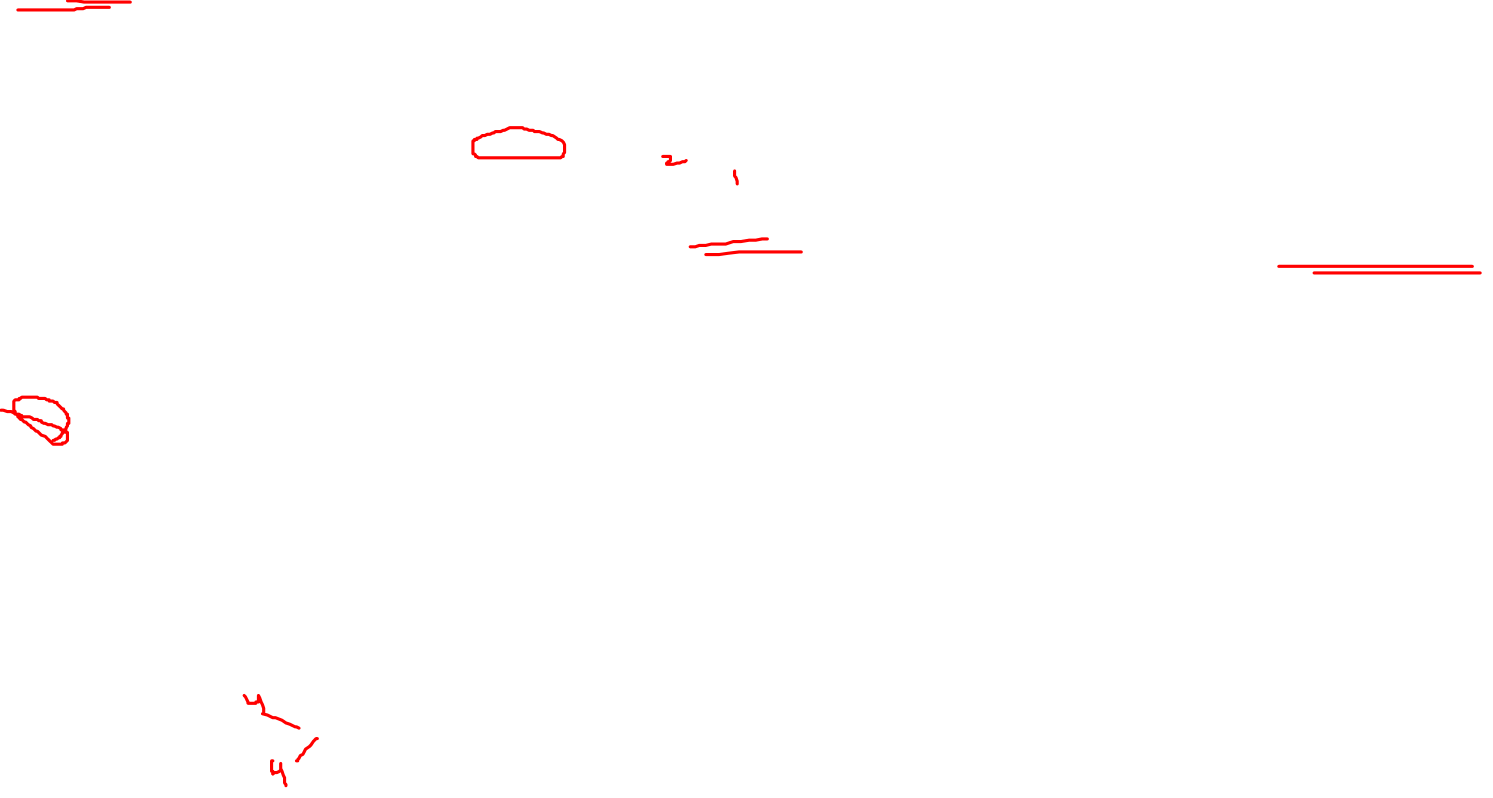 2
1
4
4